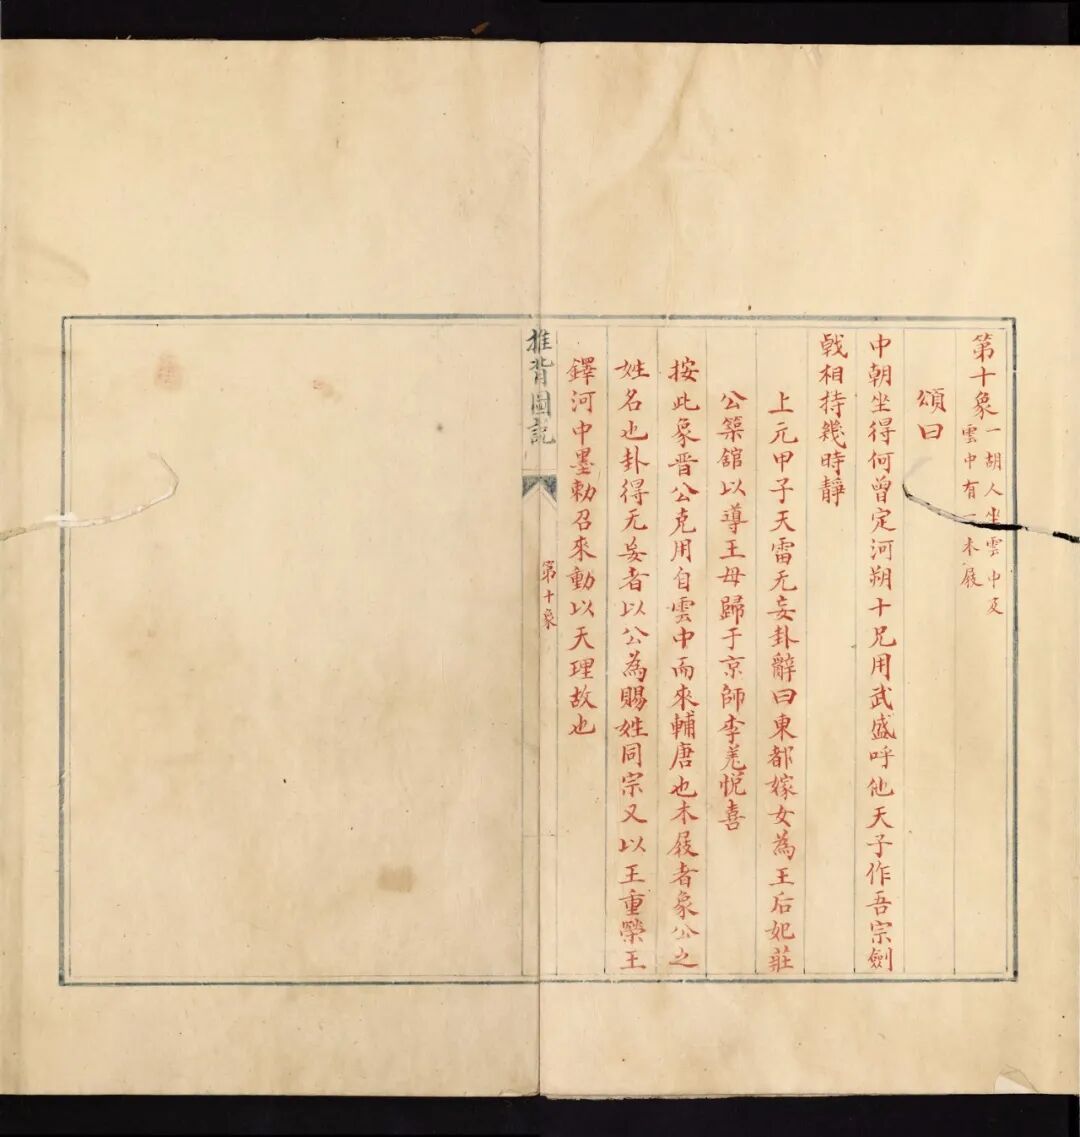 第十象一胡人坐雲中及
雲中有一木屐
頌曰
中朝坐得何曾定河朔十兄用武盛呼他天子作吾宗劍
戟相持幾時靜
上元甲子天雷无妄卦辭曰東都嫁女為王后妃莊
公築舘以尊王母歸于京師季羌悅喜
按此象晋公克用自雲中而來輔唐也木屐者象公之
姓名也卦得无妄者以公為賜姓同宗又以王重榮王
鐸河中墨勅召來動以天理故也
推背圖說
第十象